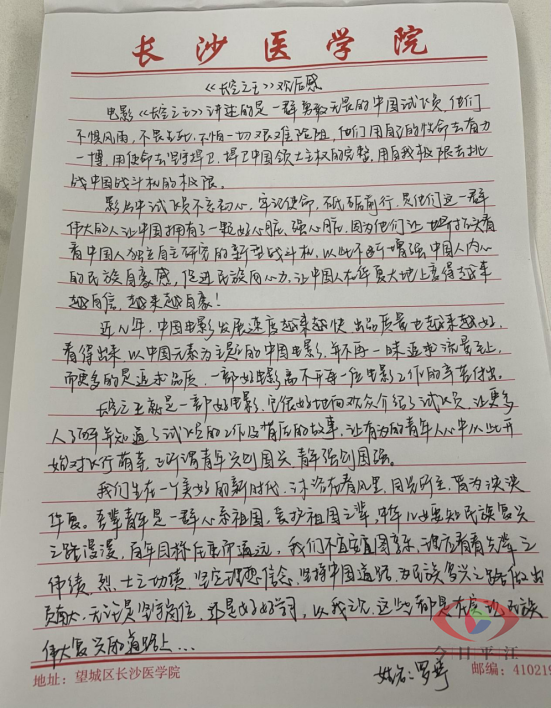 长沙医学院
《长空之王》观后感
电影《长空之王》讲述的是一群勇敢无畏的中国试飞员,他们
不惧风雨,不畏生死,不怕一切艰难险阻,他们用自己的生命去奋力
一博,用使命去坚守捍卫,捍卫中国领土主权的完整,用自我极限去挑
战中国战斗机的极限。
影片中试飞员不忘初心,牢记使命,砥砺前行,是他们这一群
伟大的人让中国拥有了一颗好心脏,强心脏,因为他们让世界
看中国人独立自主研究的新型战斗机,以此不断增强中国人内心
的民族自豪感,促进民族向心力,让中国人在华夏大地上变得越来
越自信,越来越自豪!
近几年,中国电影发展速度越来越快,出品质量也越来越好,
看得出来,以中国元素为主题的中国电影,并不再一味追求流量至上,
而更多的是追求品质,一部好电影离不开每一位电影工作的辛苦付出。
长空之王就是一部好电影,它很好地向观众介绍了试飞员,让更多
人了解并知道了试飞员的工作及背后的故事,让有为的青年人心中从此开
始对飞行萌芽,正所谓青年兴则国兴,青年强则国强。
我们生在一个美好的新时代,沐浴春风里,目光所至,皆为泱泱
华夏。吾辈青年是一群心系祖国,爱护祖国之辈,中华儿女要知民族复兴
之路漫漫,百年目标任重而道远,我们不宜贪图享乐,
伟绩,烈士之功绩,坚定理想信念,坚持中国道路,为民族复兴之路做出
贡献,无论是坚守岗位,还是好好学习,以我之
伟大复兴的道路上...
姓名:罗
地址:望城区长沙医学院
邮编:410219
今日平江